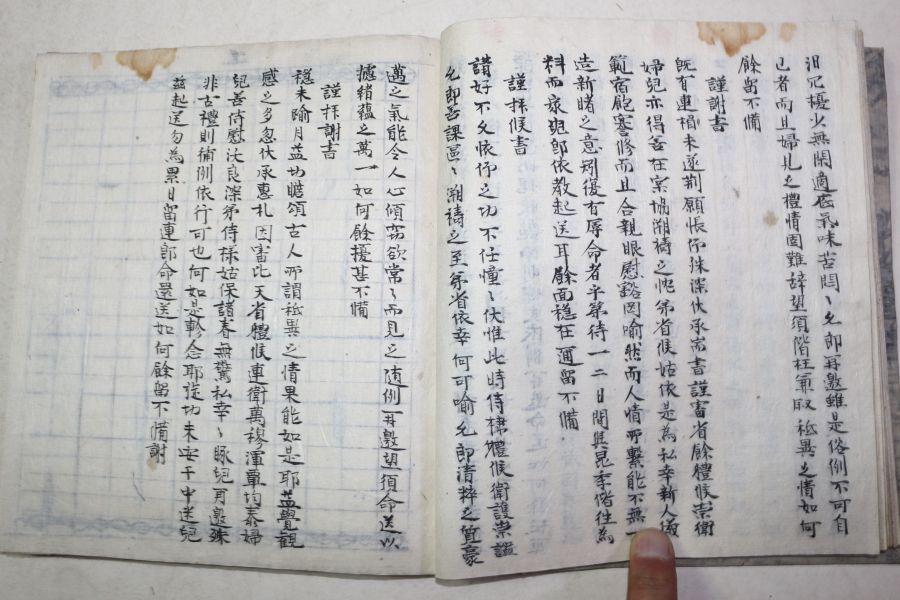 汨冗擾少無閑適底氣味苦悶〻允郎再邀雖是俗例不可自
已者而且婦兒之禮情固難辞望須偕枉兼取袛異之情如何
餘留不備
謹謝書
旣有連榻未遂荆願悵仰殊深伏承崇書謹審省餘體候崇衛
婦兒亦得吉在崇協溯禱之忱弟省候姑依是為私幸新人儀
範宿飽審修而且合親眼慰豁罔喻然而人情所繫能不無一
造新睹之意矧復有辱命者乎第待一二日間與晃季偕往為
料而哀琬郎依教起送耳餘面穏在邇留不備
謹拜候書
讃好不夂依仰之功不任憧〻伏惟此時侍棣體候衛護崇謐
允郎吾課區〻溯禱之至弟省依幸何可喻允郎清粹之質豪
邁之氣能令人心傾窃欲常〻而見之随例再邀望須命送以
攄緒蘊之萬一如何餘擾甚不備
謹拜謝書
穏未踰月益切瞻頌古人所謂袛異之情果能如是耶益覺觀
感之多忽伏承惠札因審比天省體候連衛萬穆渾覃均泰婦
兒吉侍慰沃良深弟侍樣姑保諸眷無驚私幸〻豚兒再邀殊
非古禮則俑例依行可也何如是軫念耶莚功未安千中送兒
玆起送勿為累日留連郎命還送如何餘留不備謝